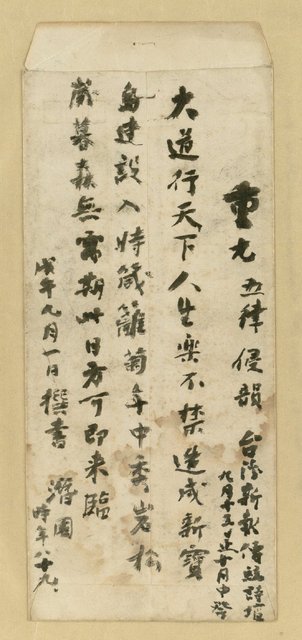 重九 五律 侵韻 台湾新報傳統詩壇
九月十五止十月中發
大道行天下人生樂不禁造成新寶
島建設入時箴籬菊年中秀岩松
歲暮森無需期此日方可即来臨
戊午九月一日撰書 潛園
時年八十九